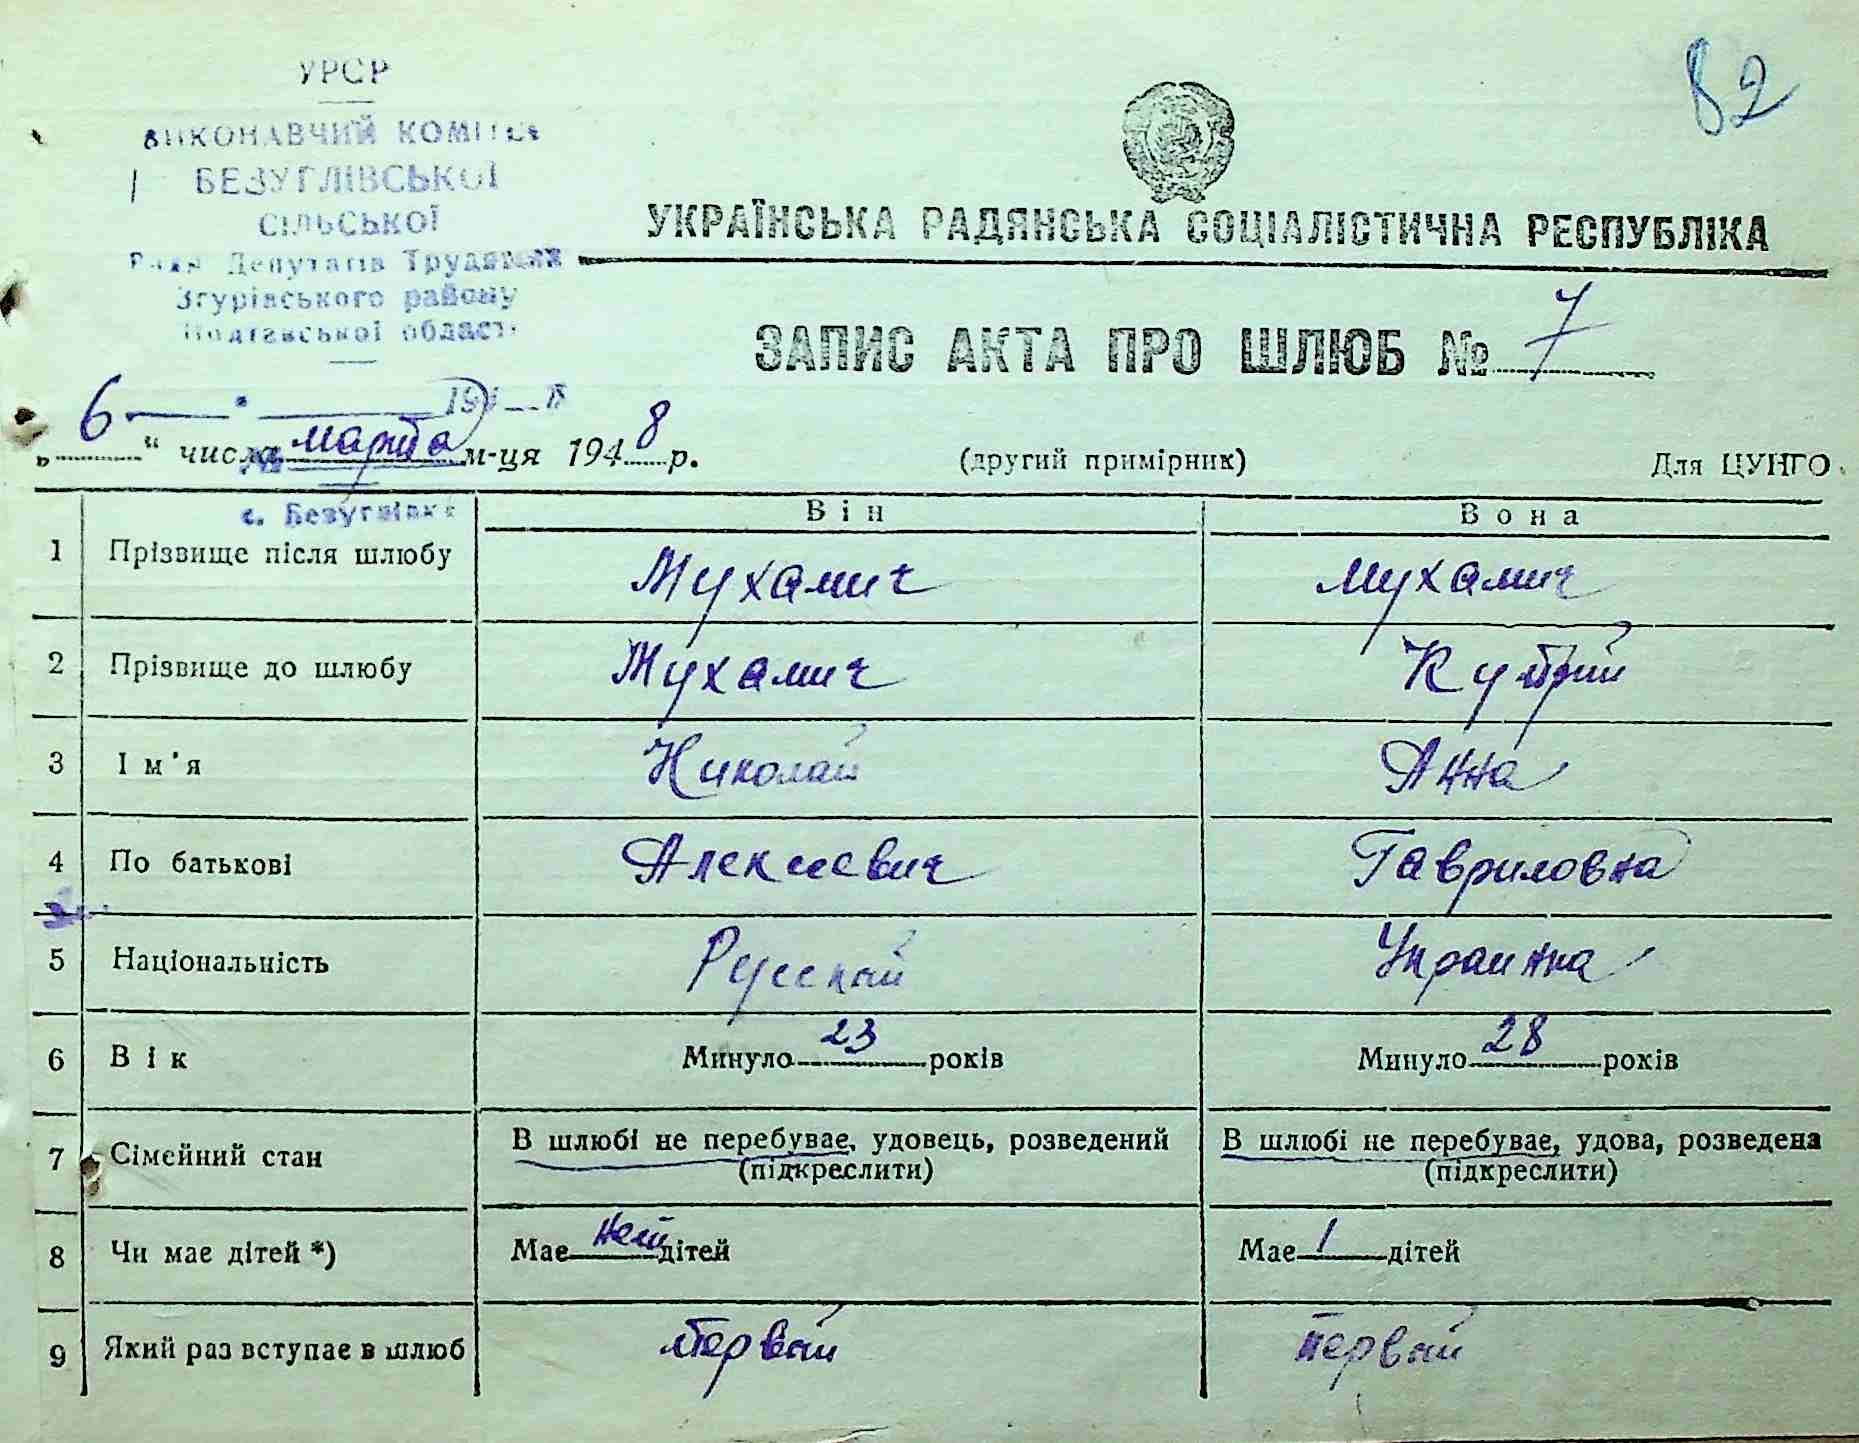 82
УРСР
ВИКОНАВЧИЙ КОМІТЕТ
БЕЗУГЛІВСЬКОЇ
СІЛЬСЬКОЇ
Ради Депутатів Трудящих
Згурівського району
Полтавської області
УКРАЇНСЬКА РАДЯНСЬКА СОЦІАЛІСТИЧНА РЕСПУБЛІКА
ЗАПИС АКТА ПРО ШЛЮБ № 7
„ 6 “ числа марта м-ця 1948 р. (другий примірник) Для ЦУНГО
с. Безуглівка
Він Вона
1 Прізвище після шлюбу Мухамич Мухамич
2 Прізвище до шлюбу Мухамич Куприй
3 Ім'я Николай Анна
4 По батькові Алексеевич Гавриловна
5 Національність Русский Украинка
6 Вік Минуло 23 років Минуло 28 років
7 Сімейний стан В шлюбі не перебуває, удовець, розведений В шлюбі не перебуває, удова, розведена
(підкреслити) (підкреслити)
8 Чи має дітей *) Має нет дітей Має 1 дітей
9 Який раз вступає в шлюб первый первый